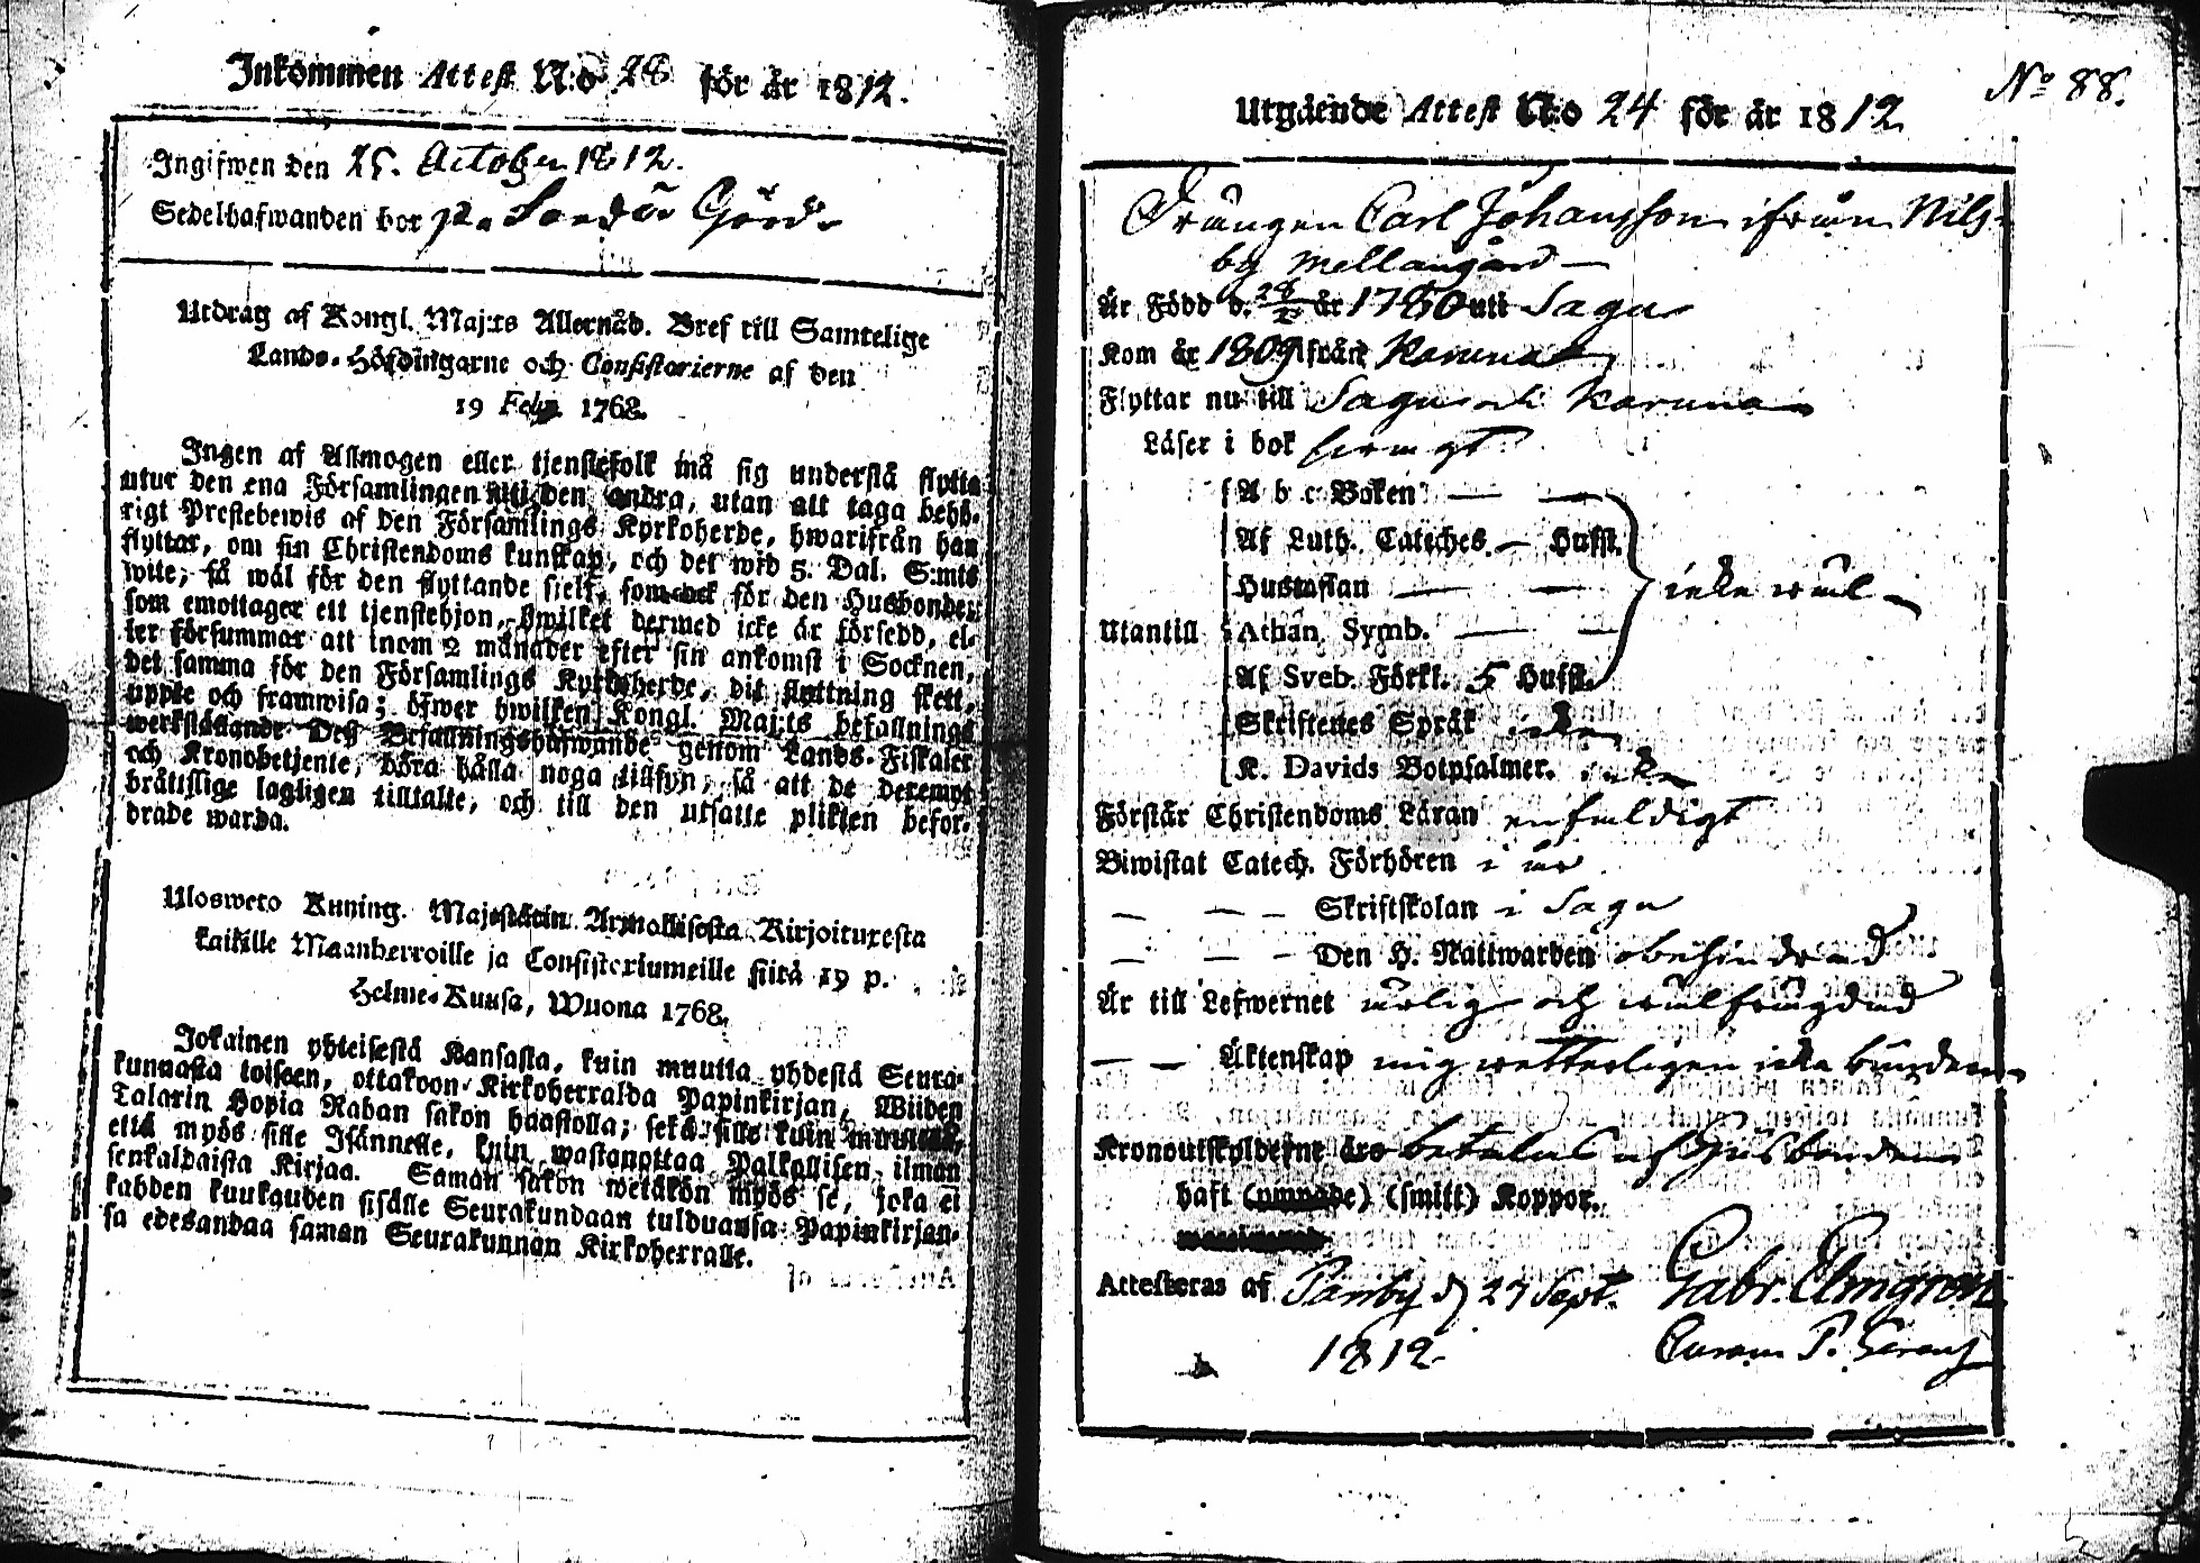 Inkommen Attest N:o 28 för år 1812.
Ingifwen den 25. October 1812.
Sedelhafwanden bor på Sandö Gård.
Utdrag af Kongl. Maj:ts Allernåd. Bref till Samtelige
Lands-Höfdingarne och Consistorierne af den
19 Febr. 1768.
Ingen af Allmogen eller tjenstefolk må sig understå flytta
utur den ena Församlingen uti den andra, utan att taga behö-
rigt Prestebewis af den Församlings Kyrkoherde, hwarifrån han
flyttar, om sin Christendoms kunskap, och det wid 5. Dal. S:mts
wite, så wäl för den flyttande sjelf, som ock för den Husbonden
som emottager ett tjenstehjon, hwilket dermed icke är försedd, el-
ler försummar att inom 2 månader efter sin ankomst i Socknen,
det samma för den Församlings Kyrkoherde, dit flyttning skett,
uppte och framwisa; öfwer hwilken Kongl. Maj:ts befallnings
werkställande Dess Befallningshafwande genom Lands-Fiskaler
och Kronobetjente, böra hålla noga tillsyn, så att de deremot
bråttslige lagligen tilltalte, och till den utsatte plikten befor-
drade warda.
Ulosweto Kuning. Majestätin Armollisesta Kirjoituxesta
kaikille Maanherroille ja Consistoriumeille siitä 19 p.
Helme-Kuusa, Wuona 1768.
Jokainen yhteisestä Kansasta, kuin muutta yhdestä Seura-
kunnasta toiseen, ottakoon Kirkoherralda Papinkirjan, Wiiden
Talarin Hopia Rahan sakon haastolla; sekä sille kuin muuttaa,
että myös sille Isännelle, kuin wastanottaa Palkollisen ilman
senkaldaista Kirjaa. Saman sakon wetäkön myös se, joka ei
kahden kuukauden sisälle Seurakundaan tulduansa Papinkirjan-
sa edesandaa saman Seurakunnan Kirkoherralle.
No 88.
Utgående Attest N:o 24 för år 1812
Drängen Carl Johansson ifrån Nils-
by Mellangård
Är Född d. 28/ år 1780 uti Sagu
Kom år 1809 ifrån Karuna
Flyttar nu till Sagu och Karuna
Läser i bok
A b c Boken
Af Luth. Cateches. Hufst.
Hustaflan icke wäl
Utantill Athan. Symb.
Af Sveb. Förkl. 5 Hufst.
Skriftenes Språk icke
K. Davids Botpsalmer. icke
Förstår Christendoms Läran enfaldigt
Biwistat Catech. Förhören i år
Skriftskolan i Sagu
Den H. Nattwarden obehindrad
Är till Lefwernet ärlig och wälfrägdad
Äktenskap mig wetterligen icke bunden
Kronoutskylderne äro betalas af Husbonden
haft (smitt) Koppor.
Attesteras af Pargby d. 27 Sept. Gabr. Elmgren
1812.